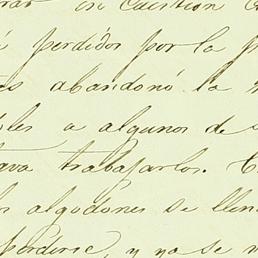 en cuestion
perdidos por la
abandonó la
a algunos de
trabajarlos.
algodones se
perderse, y no se